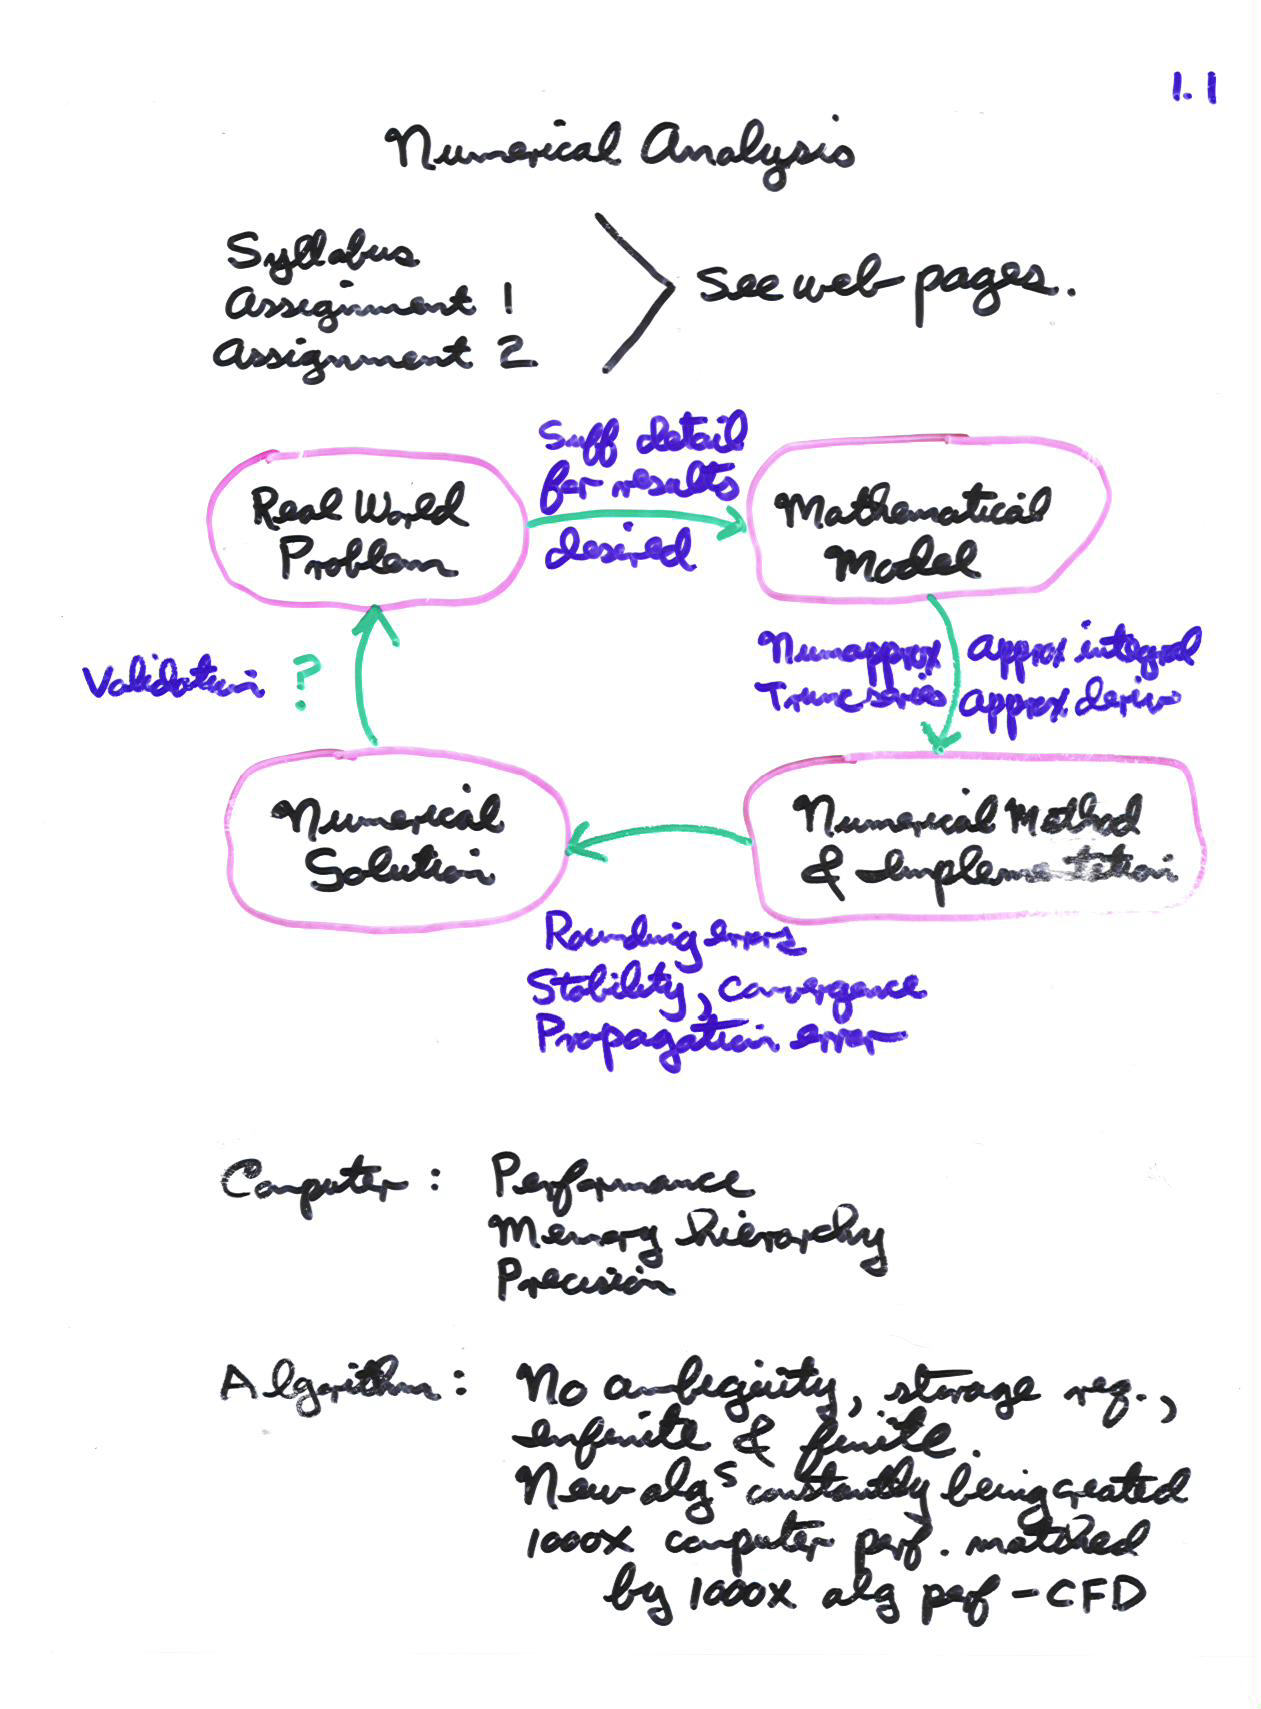 1.1
Numerical Analysis
Syllabus
Assignment 1
Assignment 2
See web pages.
Suff detail
for results
desired
Real World
Problem
Mathematical
Model
Validation ?
Num approx
Trunc series
approx integral
approx deriv
Numerical
Solution
Numerical Method
& Implementation
Rounding errors
Stability, convergence
Propagation error
Computer : Performance
Memory hierarchy
Precision
Algorithm : No ambiguity, storage req.,
infinite & finite.
New algs constantly being created
1000x computer perf. matched
by 1000x alg perf - CFD